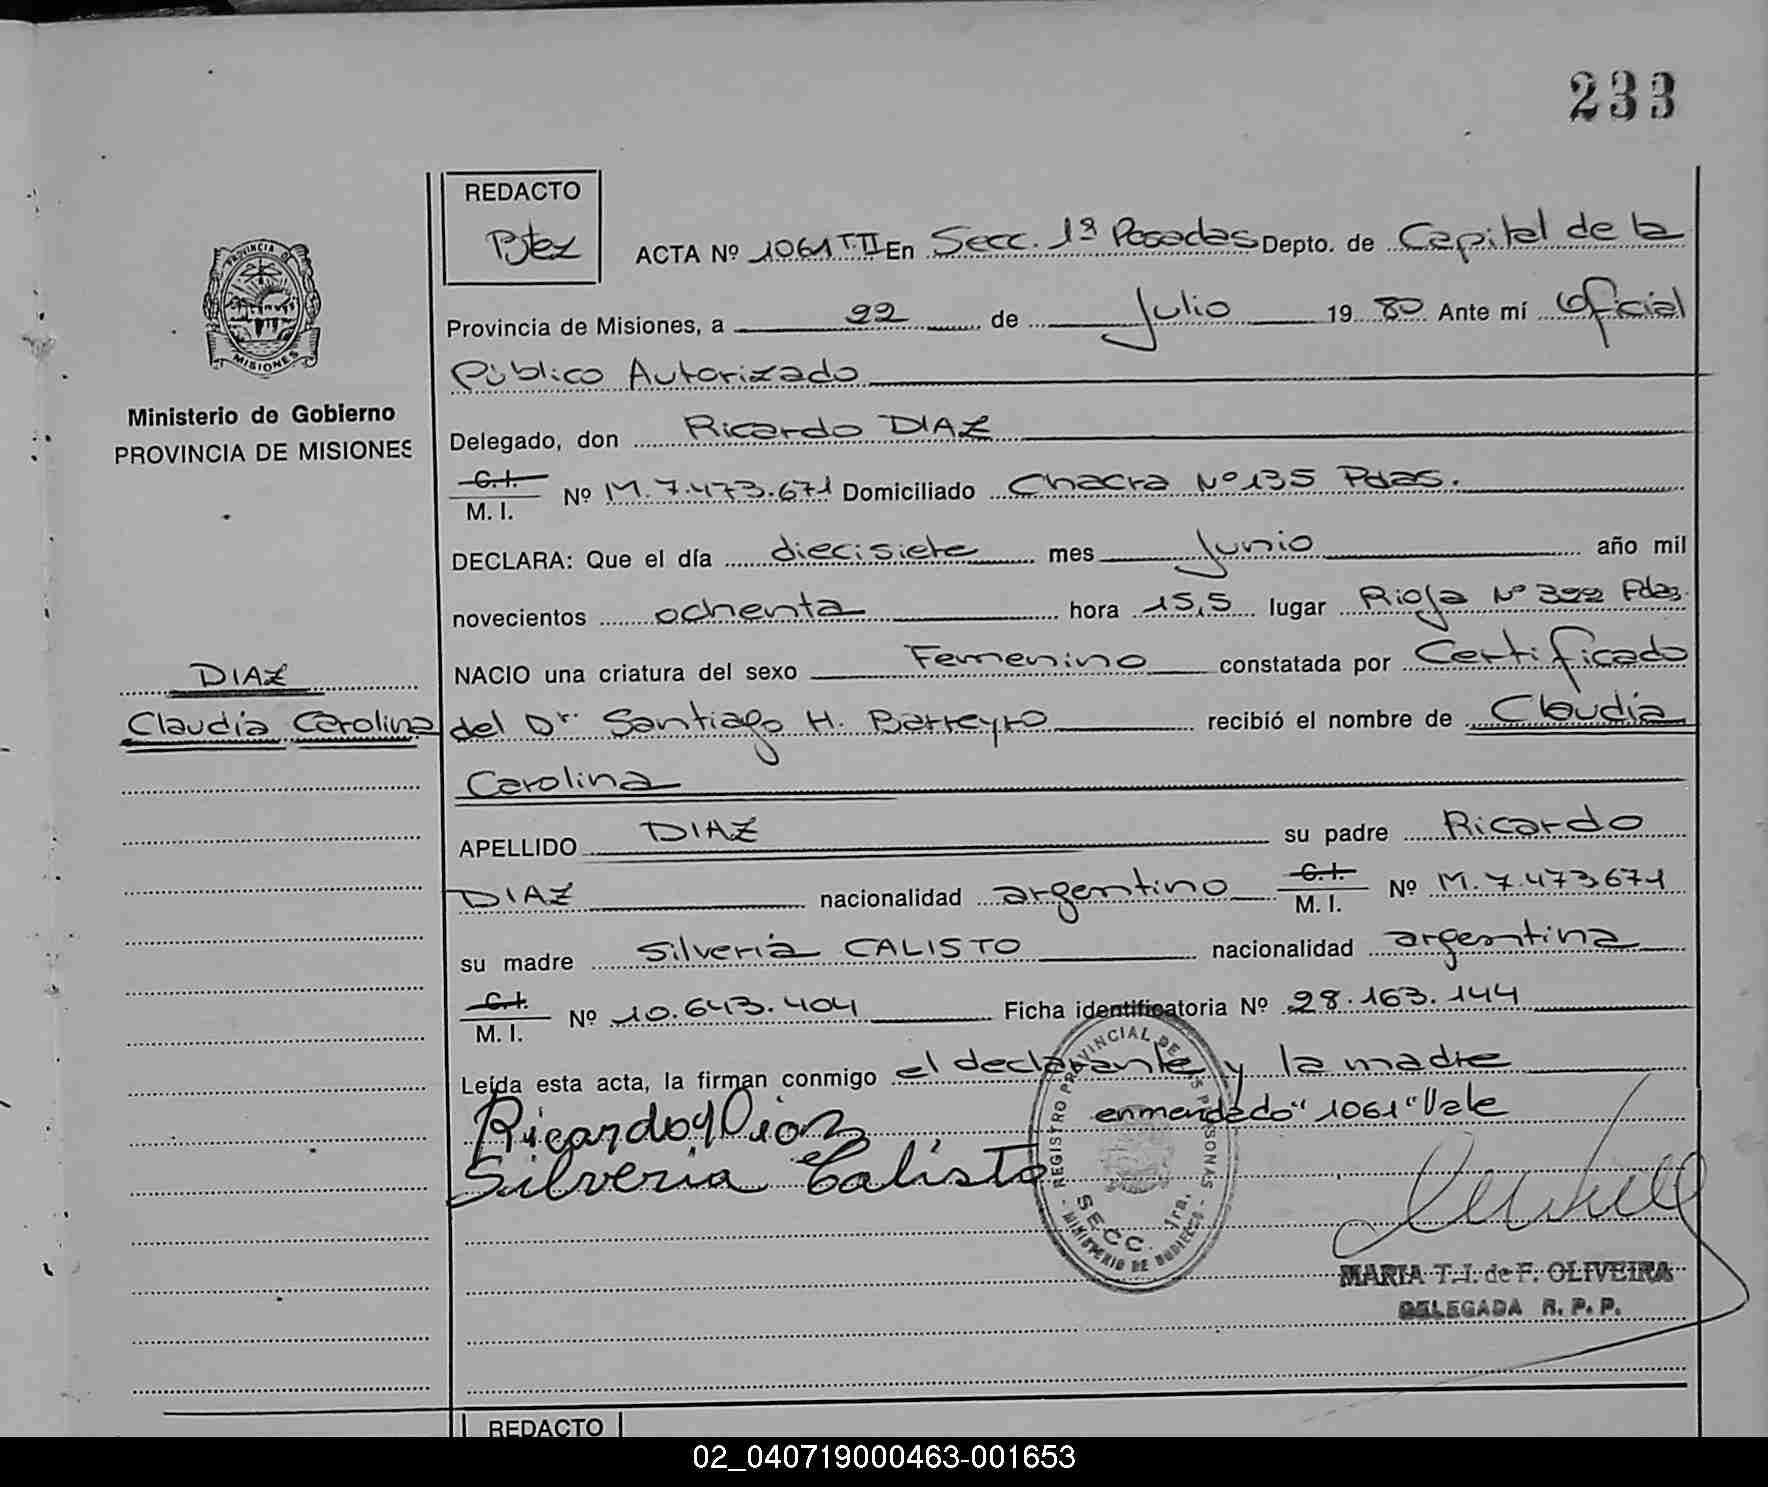 233
REDACTO
Bjez
ACTA Nº 1061 T.II En Secc. 1ª Posadas Depto. de Capital de la
PROVINCIA DE MISIONES
Provincia de Misiones, a 22 de Julio 1980 Ante mí Oficial
Público Autorizado
Ministerio de Gobierno
PROVINCIA DE MISIONES
Delegado, don Ricardo DIAZ
C.I. M. I. Nº M.7.473.671 Domiciliado Chacra Nº 135 Pdas.
DECLARA: Que el día diecisiete mes Junio año mil
novecientos ochenta hora 15,5 lugar Rioja Nº 322 Pdas.
NACIO una criatura del sexo Femenino constatada por Certificado
DIAZ
Claudia Carolina
del Dr. Santiago H. Barreyro recibió el nombre de Claudia
Carolina
APELLIDO DIAZ su padre Ricardo
DIAZ nacionalidad argentino C.I. M. I. Nº M.7.473671
su madre Silveria CALISTO nacionalidad argentina
C.I. M. I. Nº 10.643.404 Ficha identificatoria Nº 28.163.144
Leída esta acta, la firman conmigo el declarante y la madre
enmendado "1061" Vale
Ricardo Diaz
Silveria Calisto
REGISTRO PROVINCIAL DE LAS PERSONAS
SECC. 1ra.
MINISTERIO DE GOBIERNO
MARIA T. I. de F. OLIVEIRA
DELEGADA R. P. P.
REDACTO
02_040719000463-001653